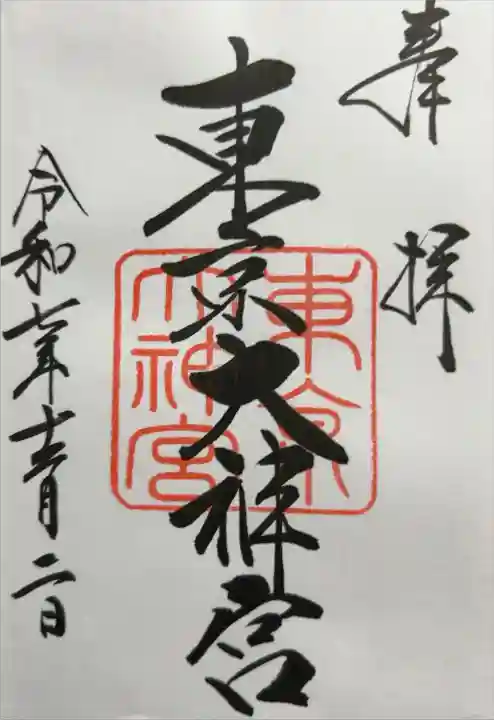 奉拝
東京大神宮
東京
大神宮
令和七年十二月二日